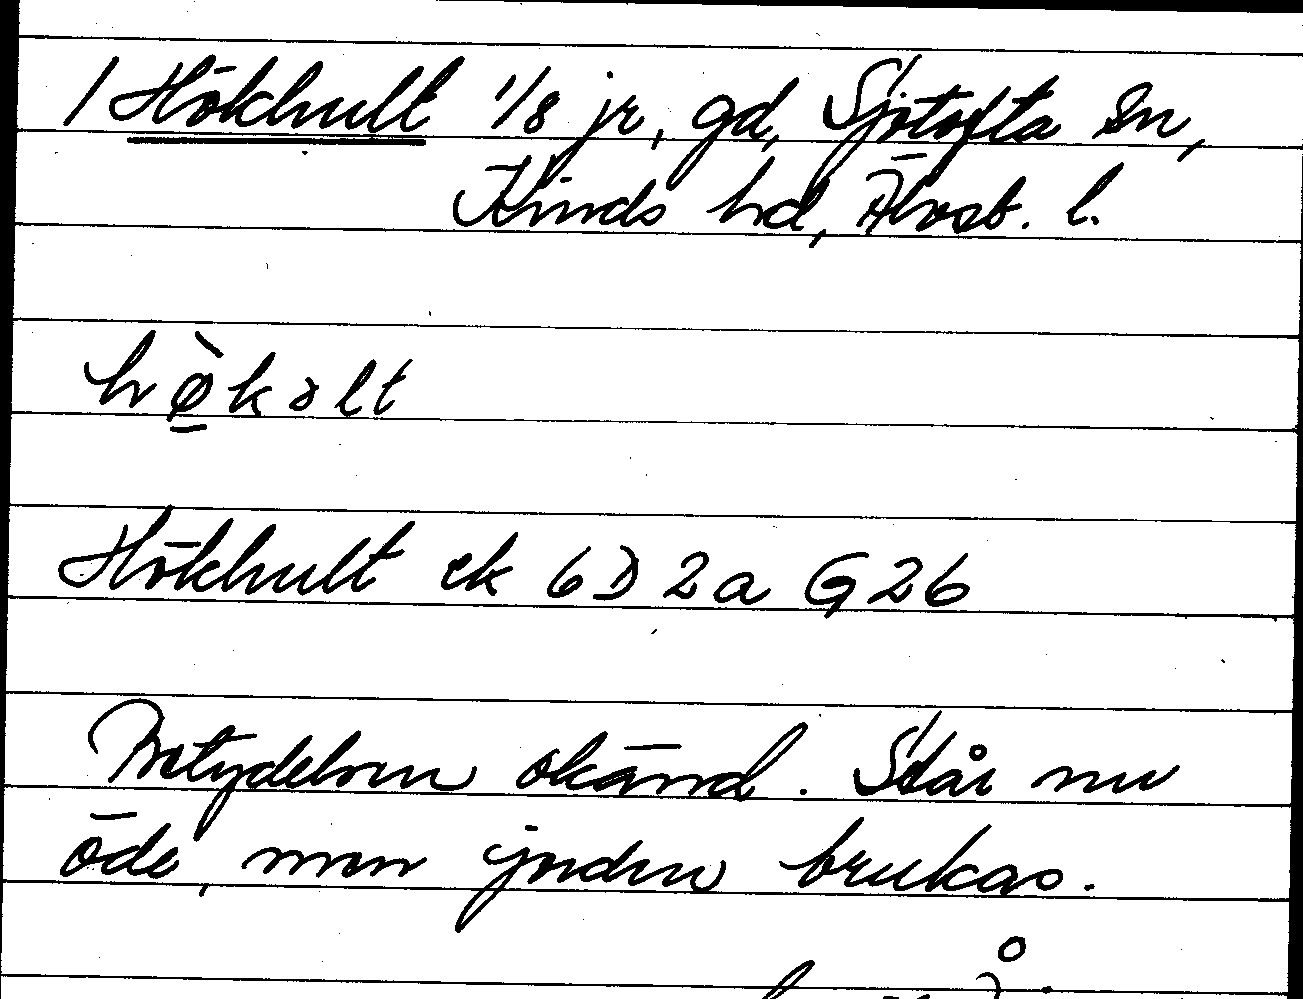 / Hökhult 1/8 jr, gd, Sjötofta sn,
Kinds hd, Älvsb. l.
hø̠̀kəlt
Hökhult ek 6D2a G26
Betydelsen okänd. Står nu
öde, men jorden brukas.